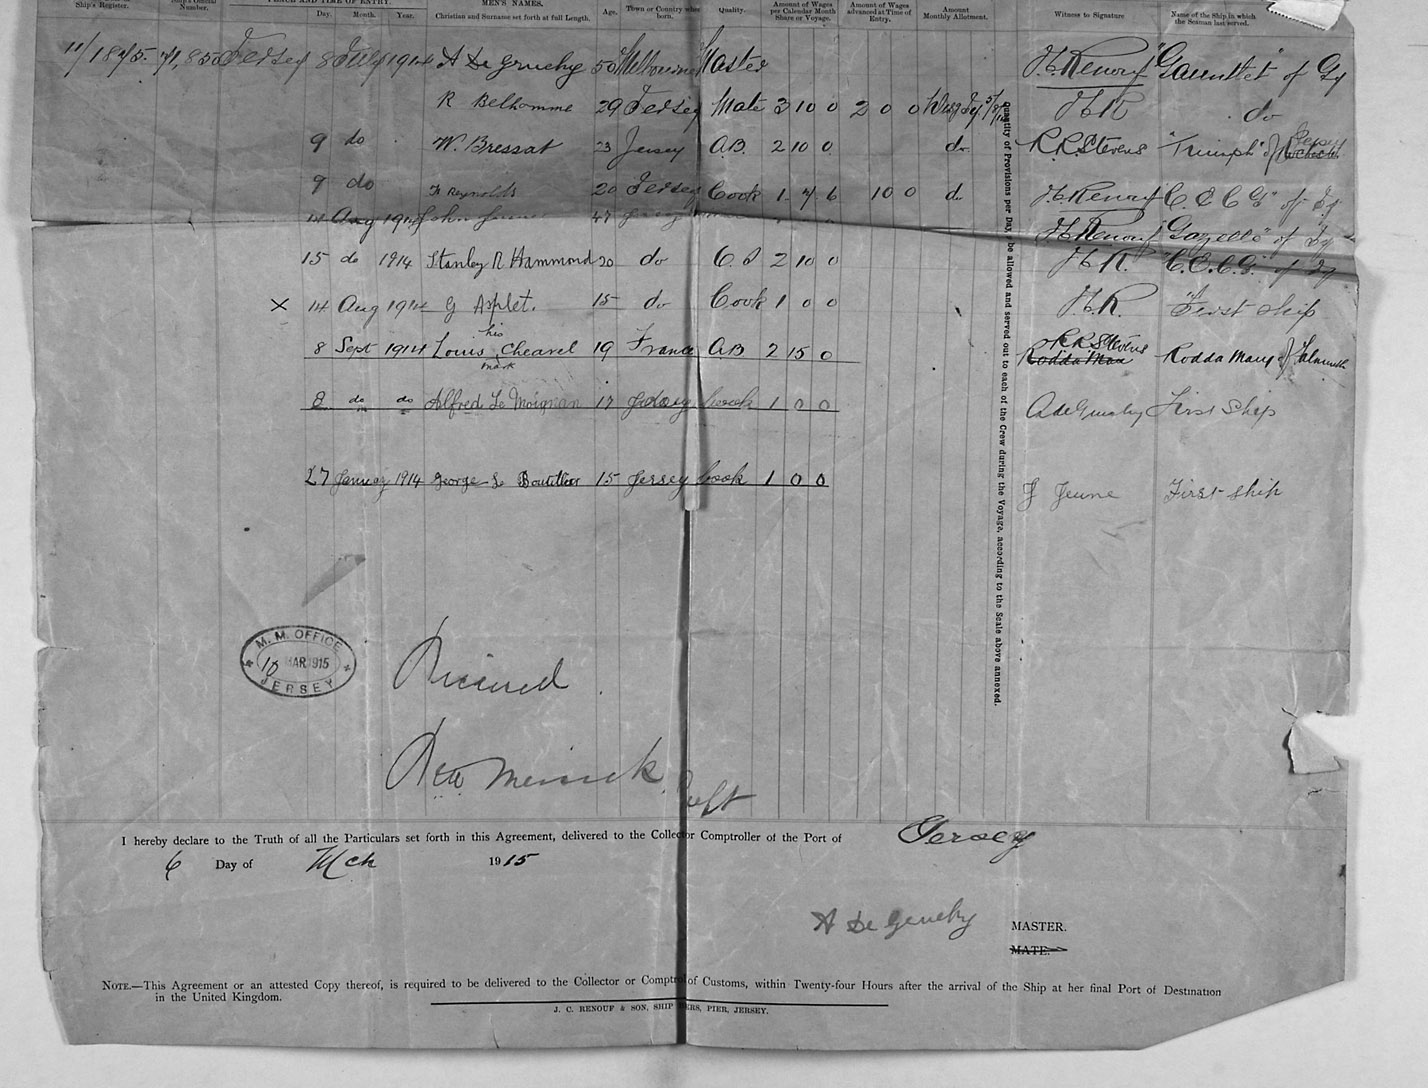 Ship's Register. Number. Day. Month. Year. MEN'S NAMES. Christian and Surname set forth at full Length. Age. Town or Country where born. Quality. Amount of Wages per Calendar Month Share or Voyage. Amount of Wages advanced at Time of Entry. Amount Monthly Allotment. Witness to Signature Name of the Ship in which the Seaman last served.
11/1875. 71,850 Jersey 8 July 1914 A De Gruchy 50 Melbourne Master H Renouf "Gauntlet" of Gy
R Belhomme 29 Jersey Mate 3 10 0 2 0 0 HR do
9 do W. Bressat 23 Jersey A.B. 2 10 0 do R.R. Stevens "Triumph" of
9 do F Reynolds 20 Jersey Cook 1 7 6 10 0 d. H Renouf "C. E. C. G" of Jy
14 Aug 1914 John 47 H Renouf "Gazelle" of Jy
15 do 1914 Stanley R Hammond 20 do O.S 2 10 0 H R. "C.E.C.G." of Jy
X 14 Aug 1914 G Asplet. 15 do Cook 1 0 0 H.R. "First ship
8 Sept 1914 Louis his mark Chearel 19 France AB 2 15 0 R R Stevens Rodda Mary of Falmouth
8 do do Alfred Le Moignan 17 Jersey Cook 1 0 0 A de Gruchy First Ship
27 January 1914 George Le Boutillier 15 Jersey Cook 1 0 0 J Jeune First ship
Quantity of Provisions per Day to be allowed and served out to each of the Crew during the Voyage, according to the Scale above annexed.
M. M. OFFICE
10 MAR 1915
JERSEY
Received
I hereby declare to the Truth of all the Particulars set forth in this Agreement, delivered to the Collector Comptroller of the Port of Jersey
6 Day of Mch 1915
A De Gruchy MASTER.
MATE.
NOTE.—This Agreement or an attested Copy thereof, is required to be delivered to the Collector or Comptrol of Customs, within Twenty-four Hours after the arrival of the Ship at her final Port of Destination
in the United Kingdom.
J. C. RENOUF & SON, SHIP ERS, PIER, JERSEY.